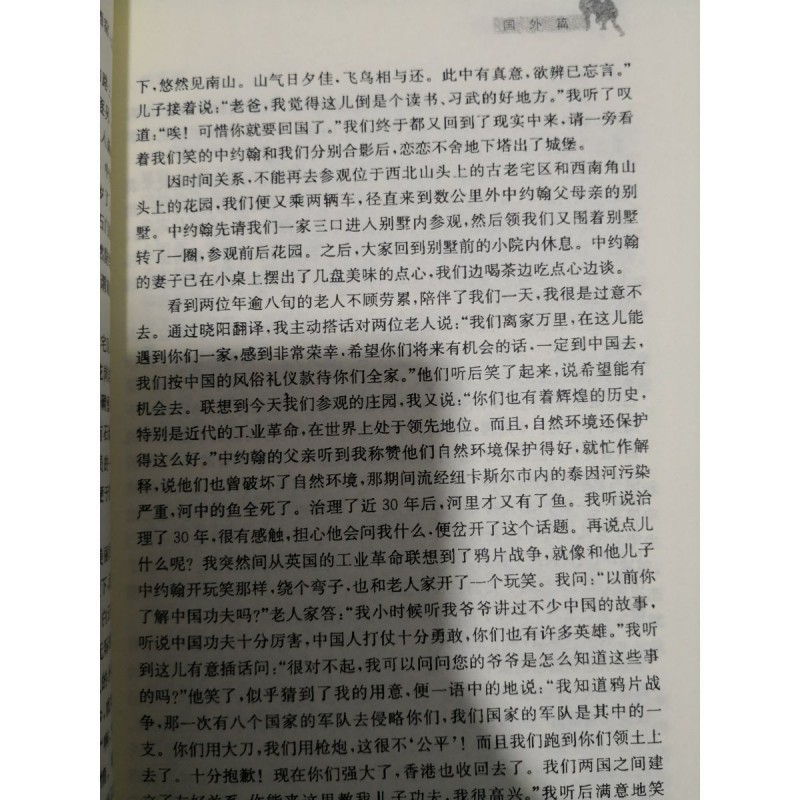 国外篇
下，悠然见南山。山气日夕佳，飞鸟相与还。此中有真意，欲辨已忘言。”
儿子接着说：“老爸，我觉得这儿倒是个读书、习武的好地方。”我听了叹
道：“唉！可惜你就要回国了。”我们终于都又回到了现实中来，请一旁看
着我们笑的中约翰和我们分别合影后，恋恋不舍地下塔出了城堡。
因时间关系，不能再去参观位于西北山头上的古老宅区和西南角山
头上的花园，我们便又乘两辆车，径直来到数公里外中约翰父母亲的别
墅。中约翰先请我们一家三口进入别墅内参观，然后领我们又围着别墅
转了一圈，参观前后花园。之后，大家回到别墅前的小院内休息。中约翰
的妻子已在小桌上摆出了几盘美味的点心，我们边喝茶边吃点心边谈。
看到两位年逾八旬的老人不顾劳累，陪伴了我们一天，我很是过意不
去。通过晓阳翻译，我主动搭话对两位老人说：“我们离家万里，在这儿能
遇到你们一家，感到非常荣幸，希望你们将来有机会的话，一定到中国去，
我们按中国的风俗礼仪款待你们全家。”他们听后笑了起来，说希望能有
机会去。联想到今天我们参观的庄园，我又说：“你们也有着辉煌的历史，
特别是近代的工业革命，在世界上处于领先地位。而且，自然环境还保护
得这么好。”中约翰的父亲听到我称赞他们自然环境保护得好，就忙作解
释，说他们也曾破坏了自然环境，那期间流经纽卡斯尔市内的泰因河污染
严重，河中的鱼全死了。治理了近30年后，河里才又有了鱼。我听说治
理了30年，很有感触，担心他会问我什么，便岔开了这个话题。再说点儿
什么呢？我突然间从英国的工业革命联想到了鸦片战争，就像和他儿子
中约翰开玩笑那样，绕个弯子，也和老人家开了一个玩笑。我问：“以前你
了解中国功夫吗？”老人家答：“我小时候听我爷爷讲过不少中国的故事，
听说中国功夫十分厉害，中国人打仗十分勇敢，你们也有许多英雄。”我听
到这儿有意插话问：“很对不起，我可以问问您的爷爷是怎么知道这些事
的吗？”他笑了，似乎猜到了我的用意，便一语中的地说：“我知道鸦片战
争，那一次有八个国家的军队去侵略你们，我们国家的军队是其中的一
支。你们用大刀，我们用枪炮，这很不‘公平’！而且我们跑到你们领土上
去了。十分抱歉！现在你们强大了，香港也收回去了。我们两国之间建
了友好关系，你能来这里教我儿子功夫，我很高兴。”我听后满意地笑